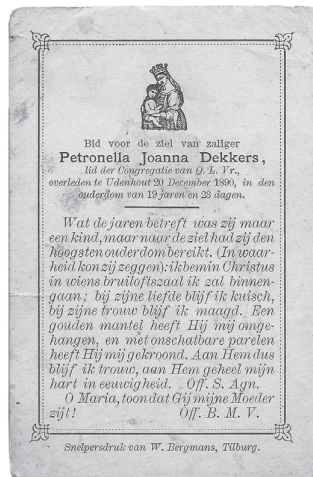 Bid voor de ziel van zaliger
Petronella Joanna Dekkers,
lid der Congregatie van O. L. Vr.,
overleden te Udenhout 20 December 1890, in den
ouderdom van 19 jaren en 23 dagen.
Wat de jaren betreft was zij maar
een kind, maar naar de ziel had zij den
hoogsten ouderdom bereikt. (In waar-
heid kon zij zeggen): ik bemin Christus
in wiens bruiloftszaal ik zal binnen-
gaan; bij zijne liefde blijf ik kuisch,
bij zijne trouw blijf ik maagd. Een
gouden mantel heeft Hij mij omge-
hangen, en met onschatbare parelen
heeft Hij mij gekroond. Aan Hem dus
blijf ik trouw, aan Hem geheel mijn
hart in eeuwigheid. Off. S. Agn.
O Maria, toon dat Gij mijne Moeder
zijt! Off. B. M. V.
Snelpersdruk van W. Bergmans, Tilburg.